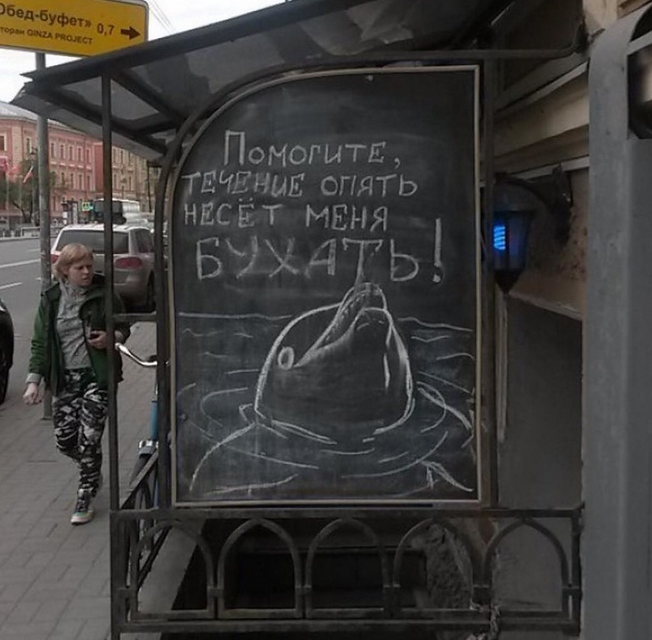 Обед-буфет» 0,7
торан GINZA PROJECT
Помогите,
течение опять
несёт меня
БУХАТЬ!